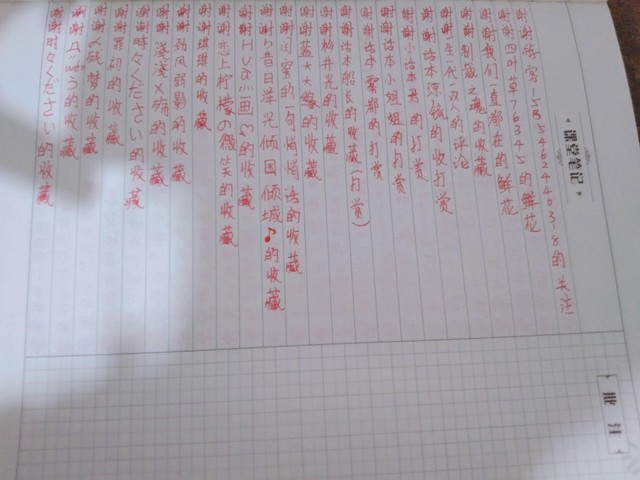 课堂笔记
谢谢访客-1585462446318的关注
谢谢四叶草76345的鲜花
谢谢我们一直都在的鲜花
谢谢制裁之魂的收藏
谢谢一生一代一双人的评论
谢谢话本凉城的收打赏
谢谢小话本君的打赏
谢谢话本小姐姐的打赏
谢谢话本雾都的打赏
谢谢话本船长的收藏(打赏)
谢谢柳井光的收藏
谢谢蓝大大缘的收藏
谢谢闺蜜的一句悄悄话的收藏
谢谢昔日泽光倾国倾城♪的收藏
谢谢Hua画的收藏
谢谢恋上柠檬の微笑的收藏
谢谢琪琪的收藏
谢谢劲风弱影的收藏
谢谢浅浅乂殇的收藏
谢谢時々ください的收藏
谢谢罪初的收藏
谢谢乄残梦的收藏
谢谢的收藏
谢谢時々ください的收藏
批注